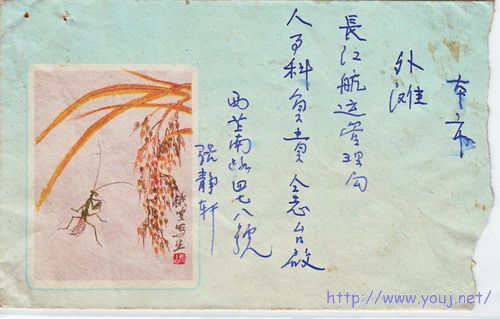 本市
外滩
長江航运管理局
人事科負責仝志台啟
西芷南路四七八號
張静轩
鉄生写生
http://www.youj.net/